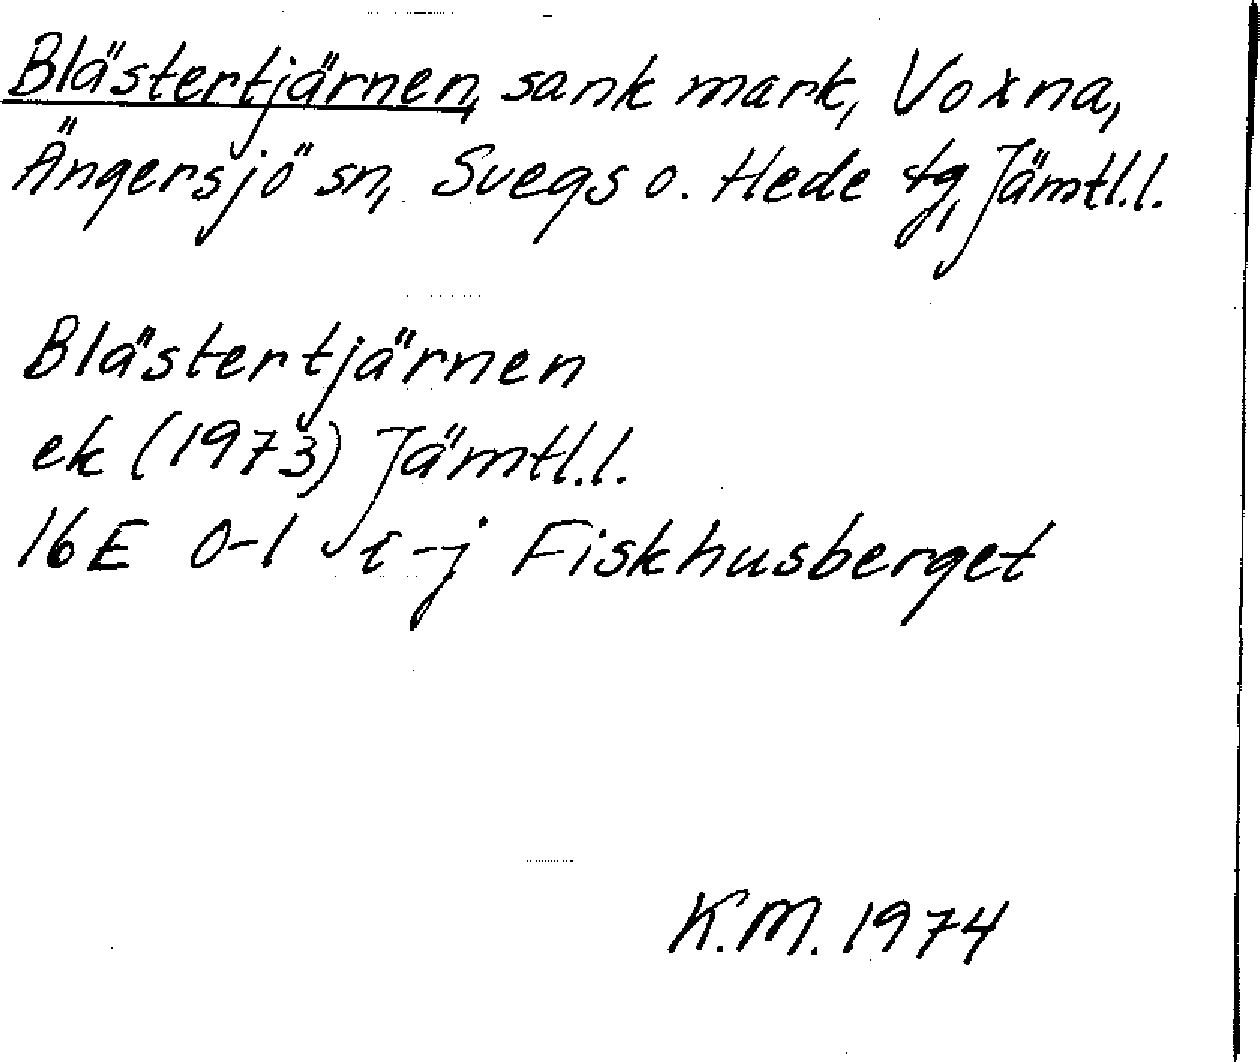 Blästertjärnen, sank mark, Voxna,
Ängersjö sn, Svegs o. Hede tg, Jämtl.l.
Blästertjärnen
ek (1973) Jämtl.l.
16E 0-1 i-j Fiskhusberget
K.M. 1974